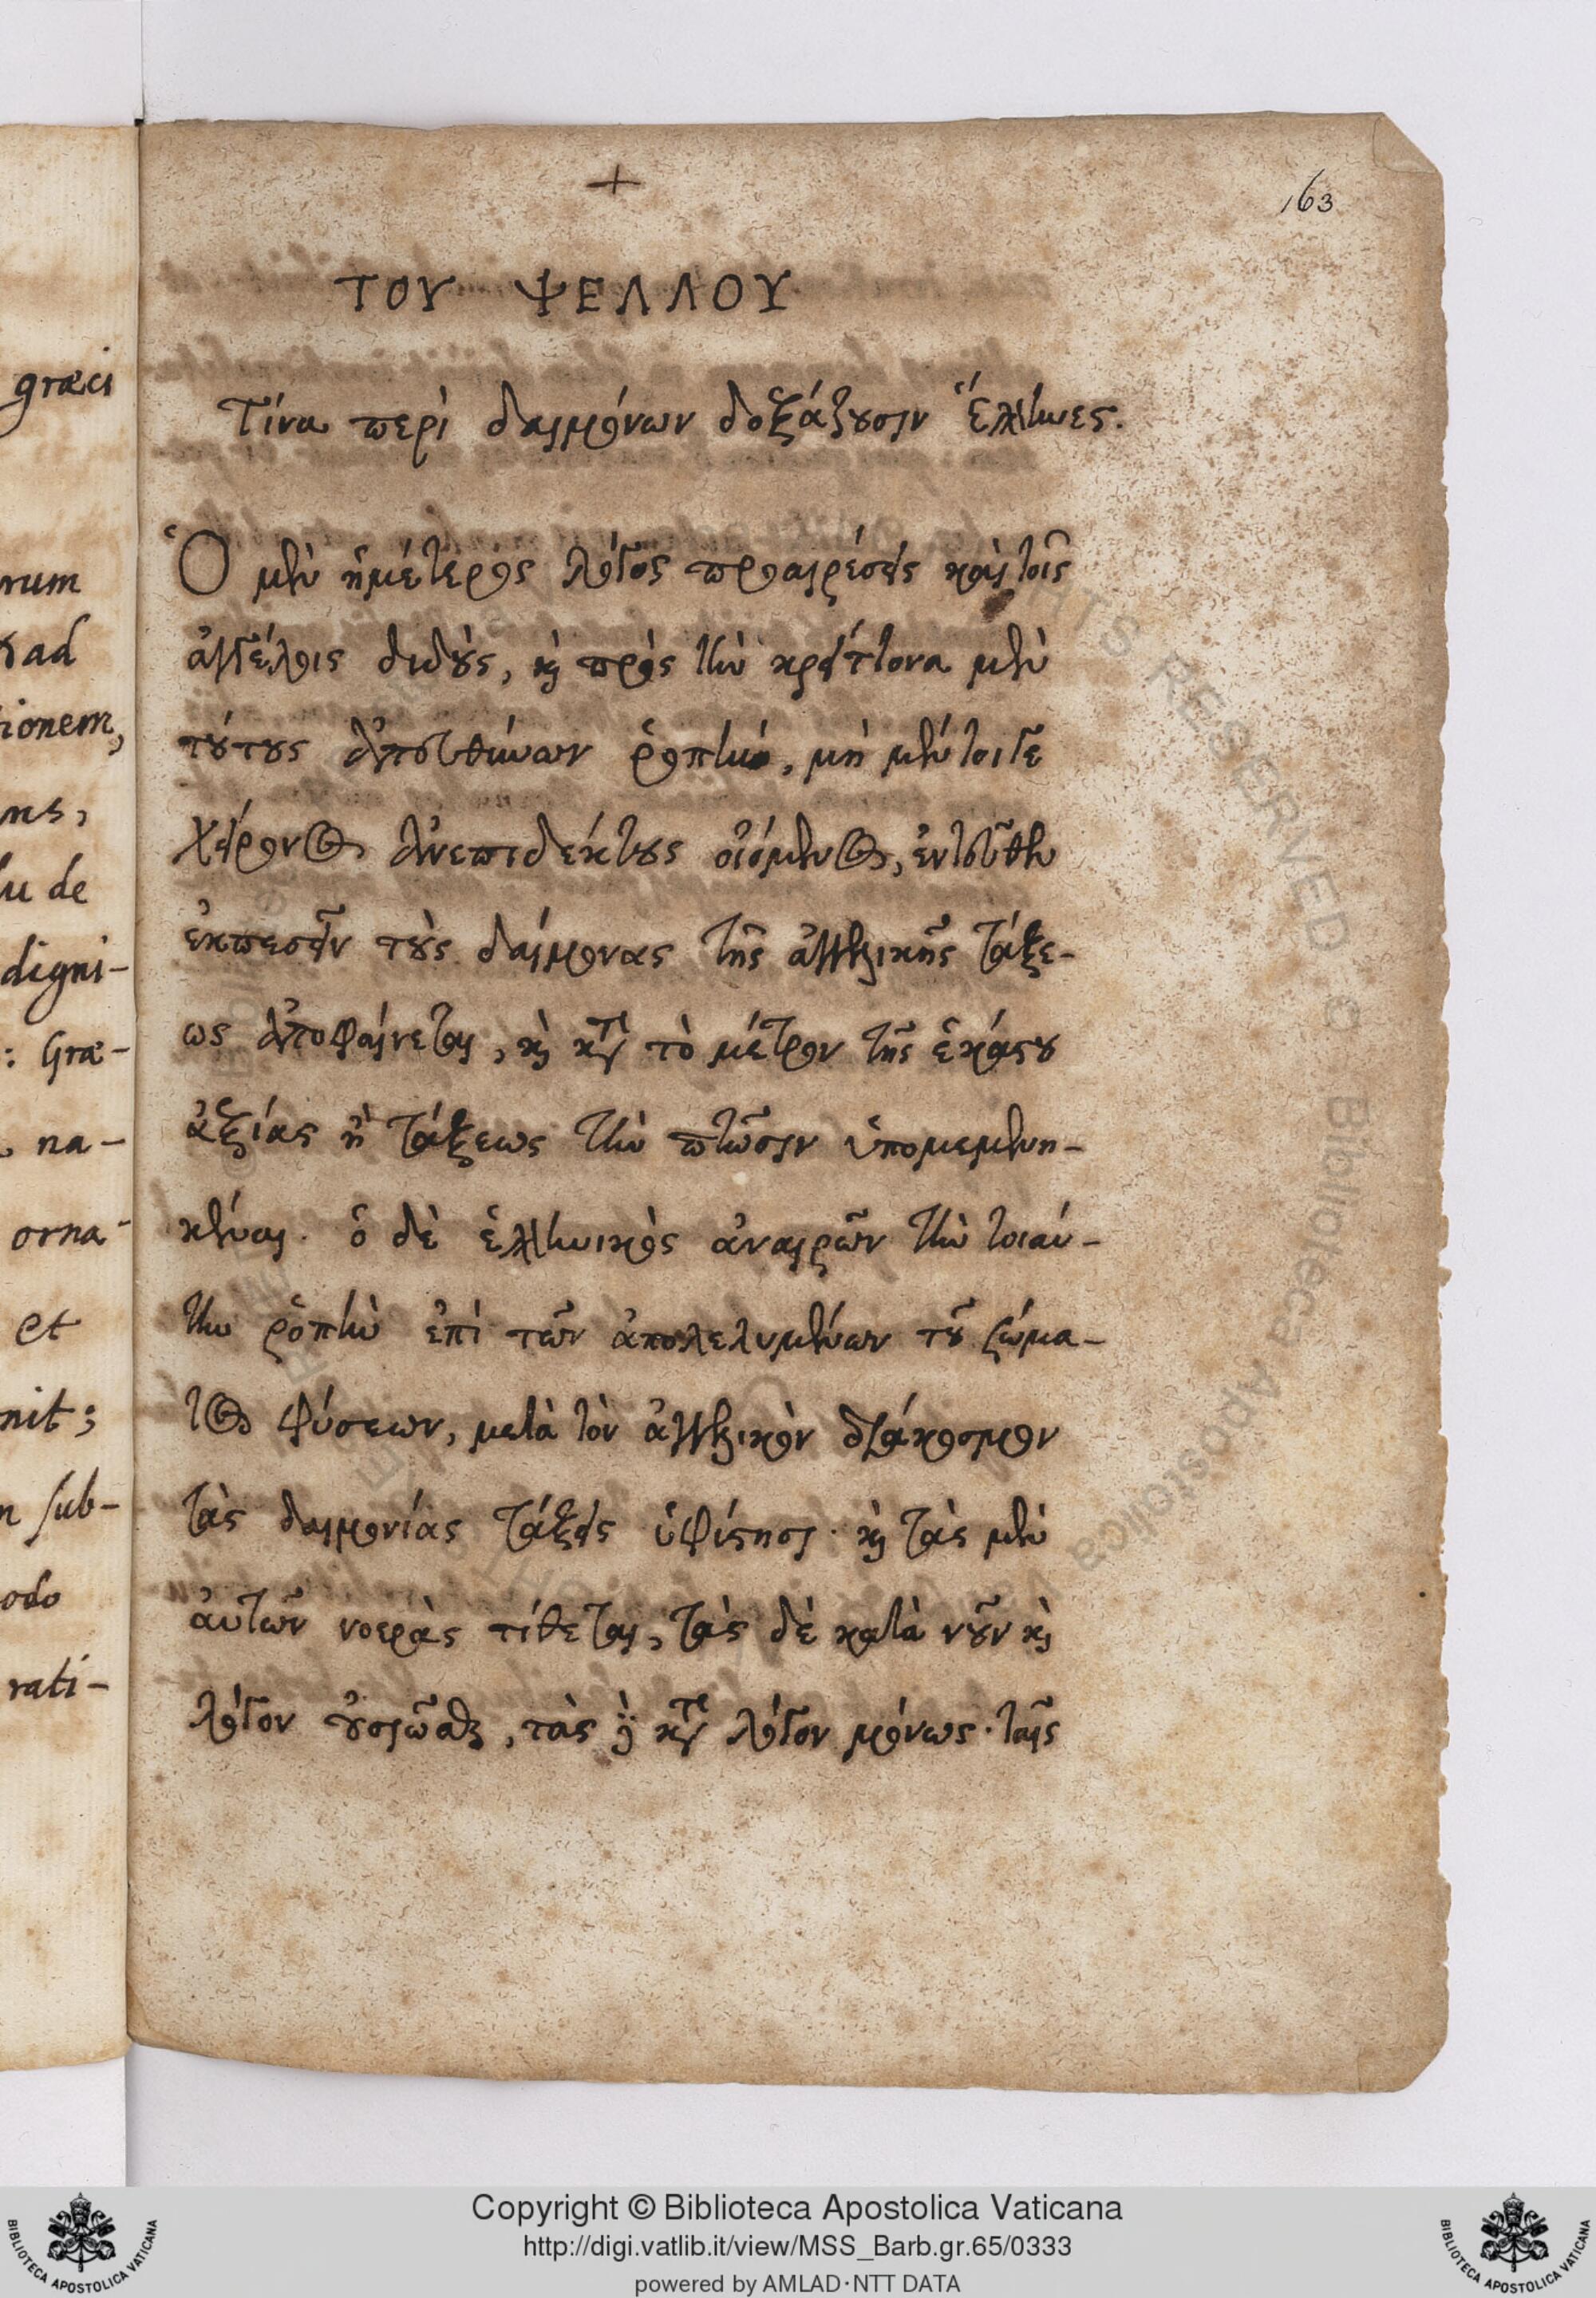 graeci
rum
ad
tionem,
ns,
lu de
digni-
: Grae-
na-
orna-
et
nit;
n sub-
odo
rati-
+
163
ΤΟΥ ΨΕΛΛΟΥ
Τίνα περὶ δαιμόνων δοξάζουσιν Ἕλληνες.
Ὁ μὲν ἡμέτερος λόγος προαιρέσεις καὶ τοῖς
ἀγγέλοις διδοὺς, καὶ πρὸς τὴν κρείττονα μὲν
τούτους ἀπευθύνων ῥοπὴν, μὴ μέντοιγε
χείρονος ἀνεπιδέκτους οἰόμενος, ἐντεῦθεν
ἐκπεσεῖν τοὺς δαίμονας τῆς ἀγγελικῆς τάξε-
ως ἀποφαίνεται, καὶ κατὰ τὸ μέτρον τῆς ἑκάστου
ἀξίας ἢ τάξεως τὴν πτῶσιν ὑπομεμενη-
κέναι. ὁ δὲ ἑλληνικὸς ἀναιρῶν τὴν τοιαύ-
την ῥοπὴν ἐπὶ τῶν ἀπολελυμένων τοῦ σώμα-
τος φύσεων, μετὰ τὸν ἀγγελικὸν διάκοσμον
τὰς δαιμονίας τάξεις ὑφίστησι. καὶ τὰς μὲν
αὐτῶν νοερὰς τίθεται, τὰς δὲ κατὰ νοῦν καὶ
λόγον οὐσιῶσθαι, τὰς δὲ κατὰ λόγον μόνως. ταῖς
RIGHTS RESERVED © Biblioteca Apostolica Vaticana
Copyright © Biblioteca Apostolica Vaticana
http://digi.vatlib.it/view/MSS_Barb.gr.65/0333
powered by AMLAD·NTT DATA
BIBLIOTECA APOSTOLICA VATICANA
BIBLIOTECA APOSTOLICA VATICANA